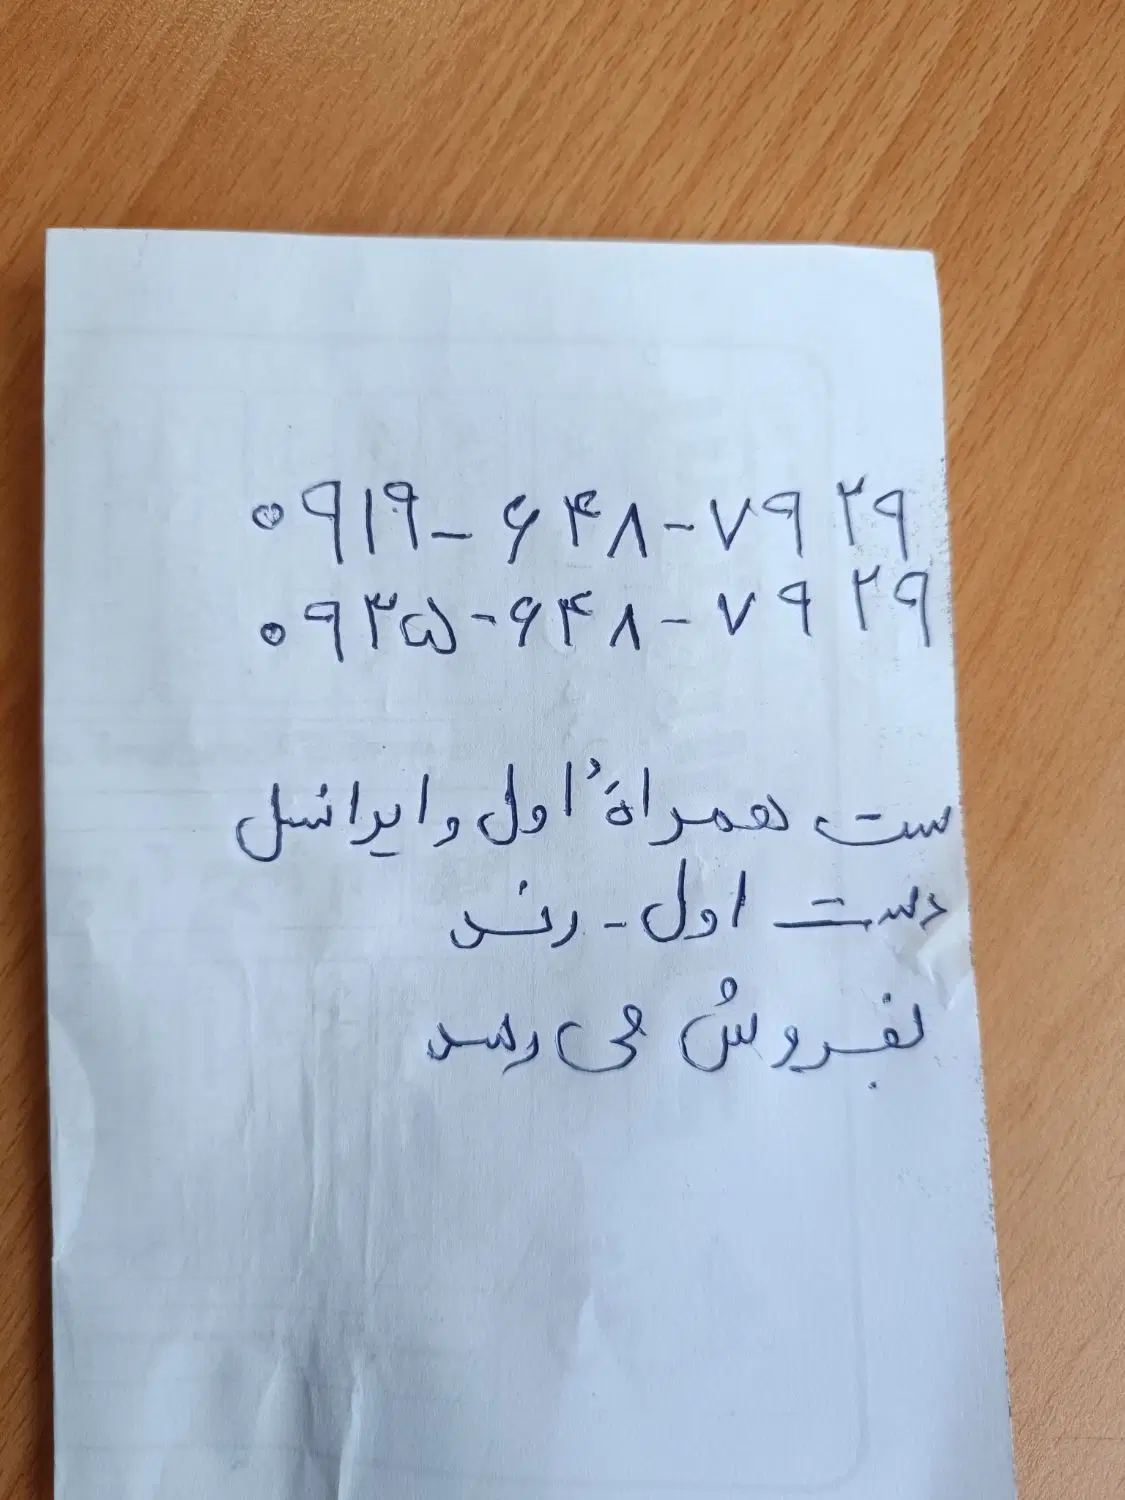 ۰۹۱۹-۶۴۸-۷۹۲۹
۰۹۳۵-۶۴۸-۷۹۲۹
ست همراه اول و ایرانسل
دست اول - رند
بفروش می رسد